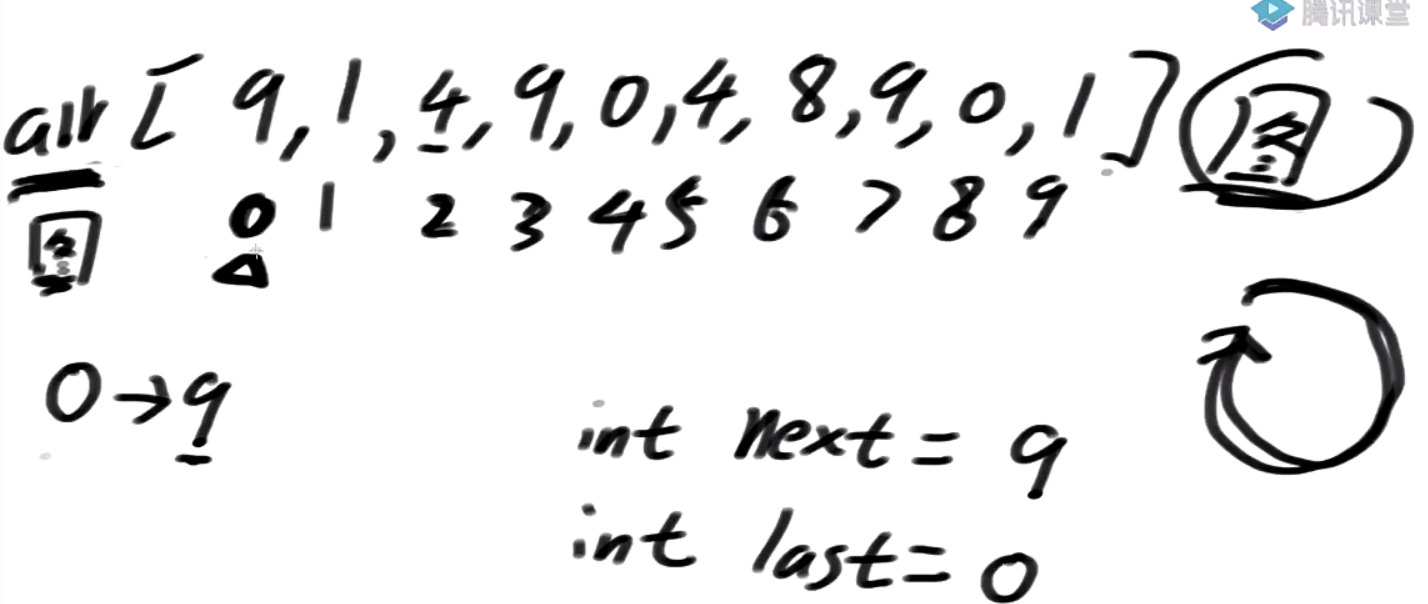 腾讯课堂
arr [ 9, 1, 4, 9, 0, 4, 8, 9, 0, 1 ] 图
0 1 2 3 4 5 6 7 8 9
图
0→9
int next = 9
int last = 0